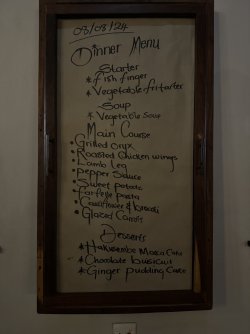 08/08/24
Dinner Menu
Starter
* Fish finger
* Vegetable fritarter
Soup
* Vegetable Soup
Main Course
• Grilled Oryx
• Roasted Chicken wings
• Lamb Leg
• Pepper Sauce
• Sweet potato
• Farfelle pasta
• Cauliflower & brocoli
• Glazed Carrots
Desserts
* Hakusembe Mocca Cake
* Chocolate buiscuit
* Ginger pudding Cake